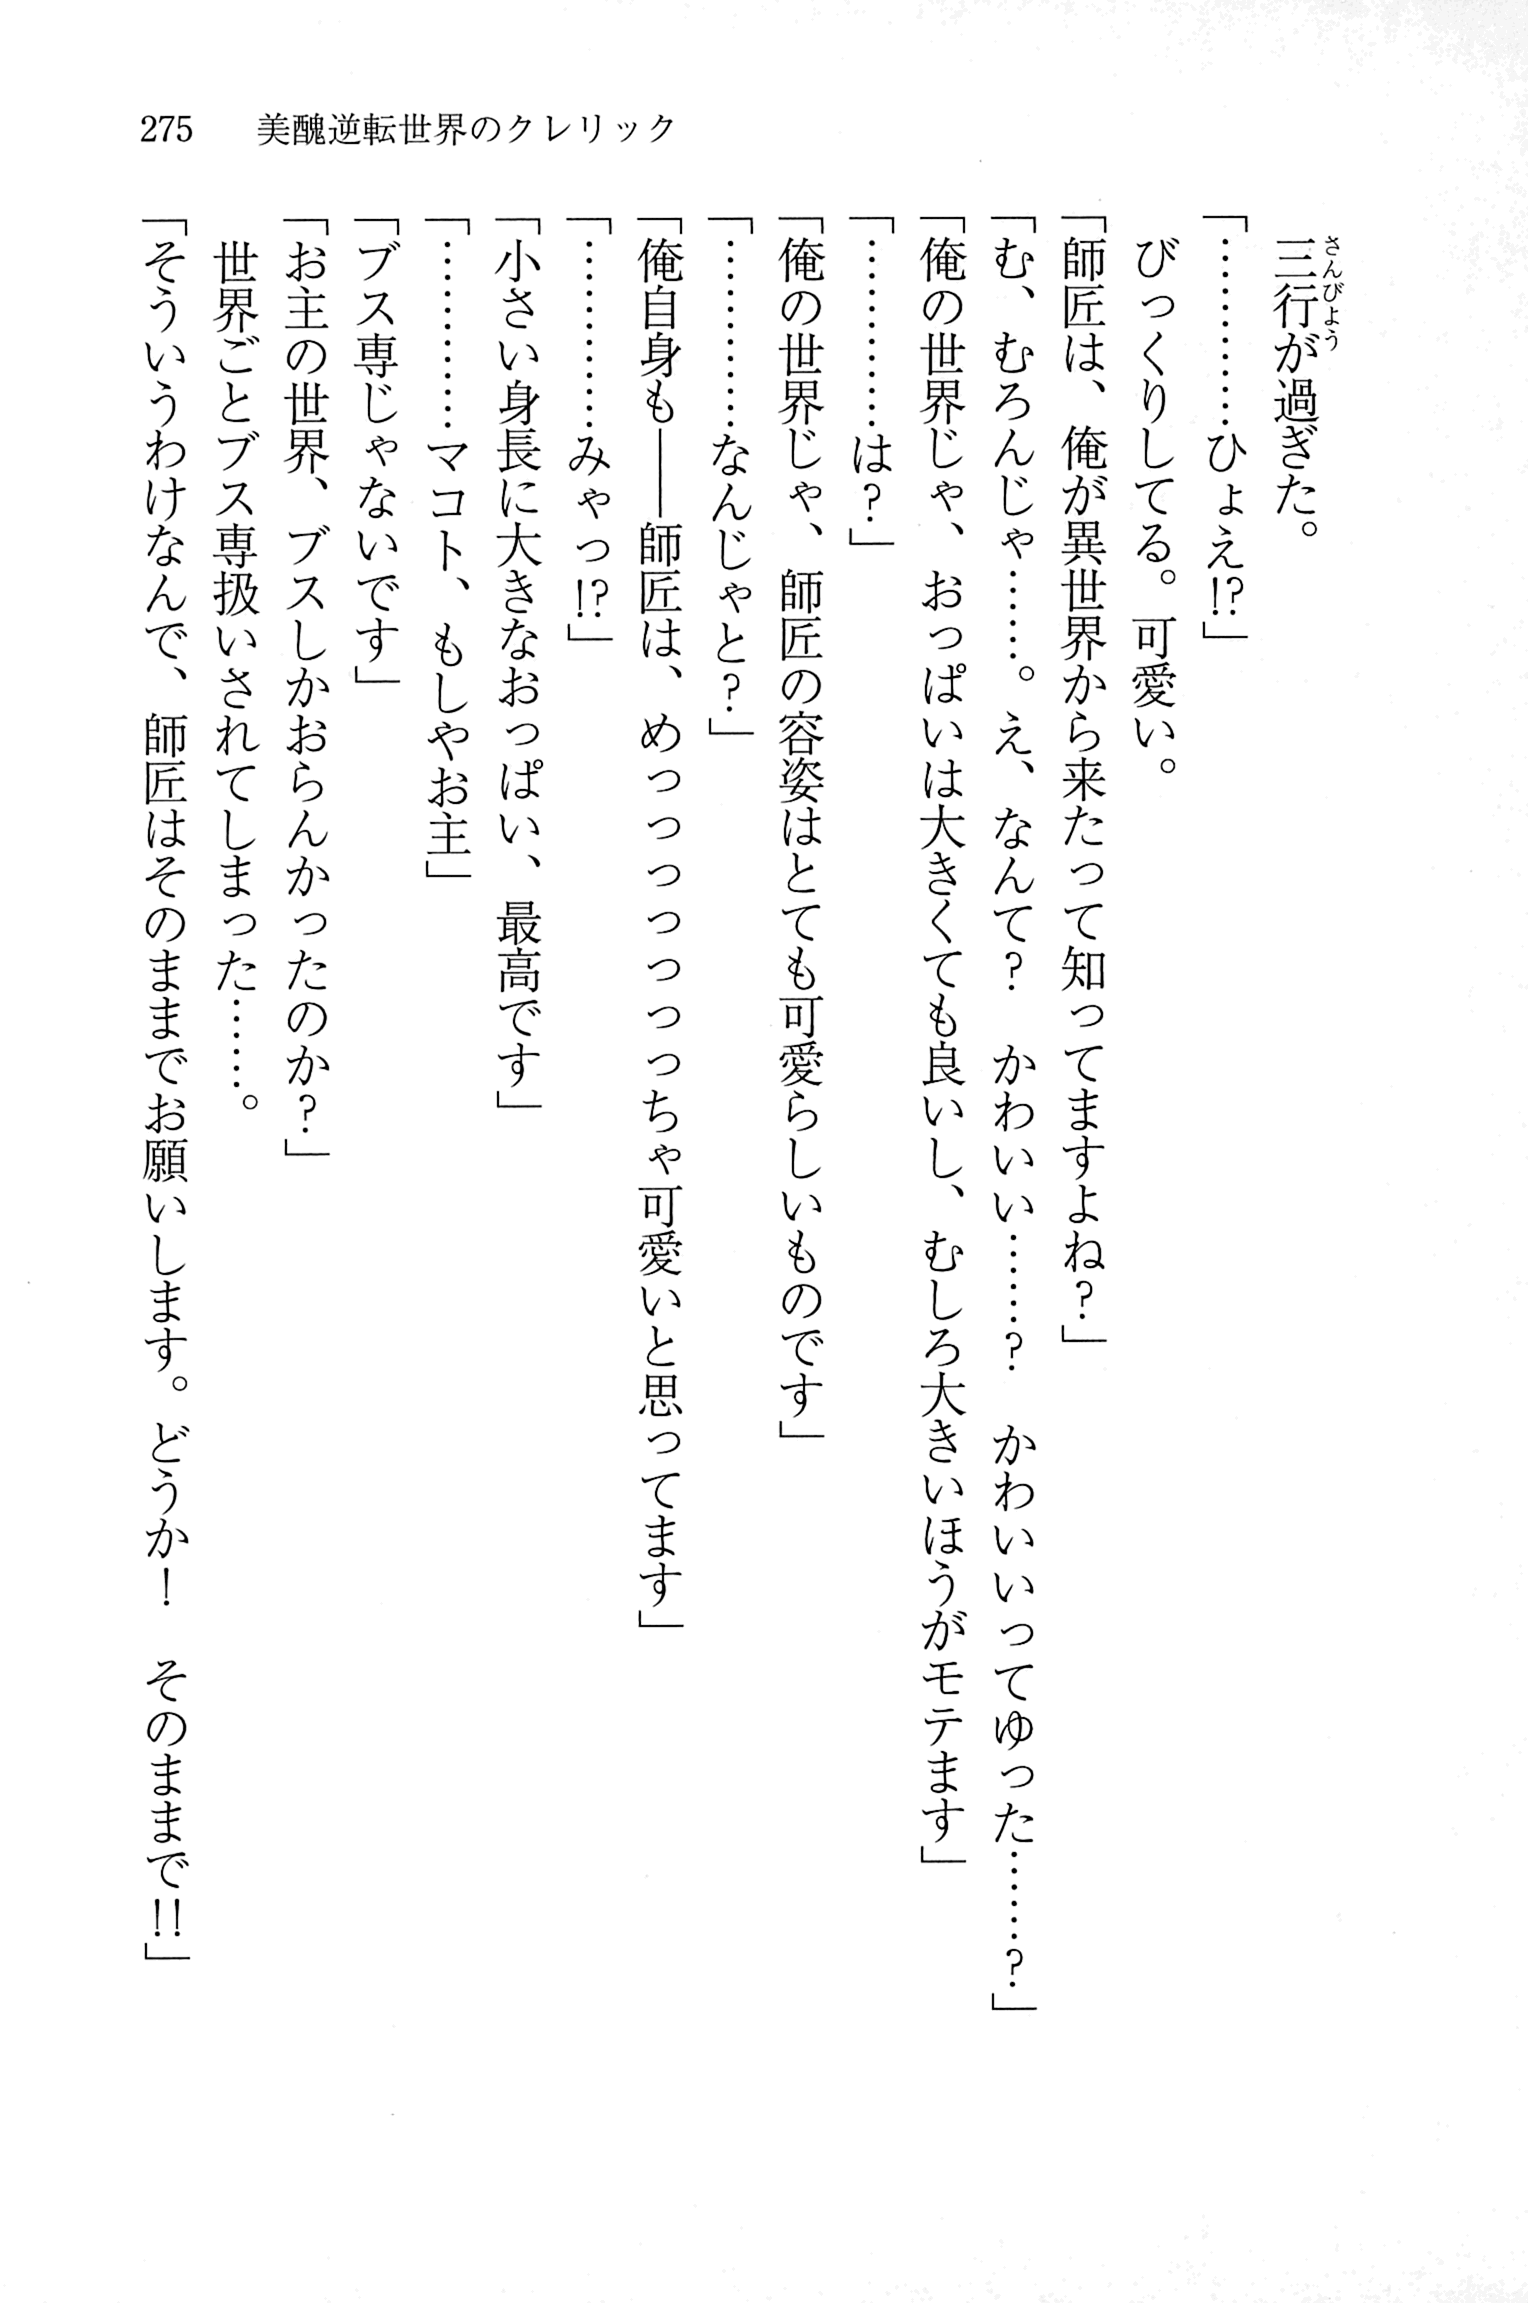 275 美醜逆転世界のクレリック
三行が過ぎた。
さんびょう
「…………ひょえ!?」
びっくりしてる。可愛い。
「師匠は、俺が異世界から来たって知ってますよね？」
「む、むろんじゃ……。え、なんて？　かわいい……？　かわいいってゆった………？」
「俺の世界じゃ、おっぱいは大きくても良いし、むしろ大きいほうがモテます」
「…………は？」
「俺の世界じゃ、師匠の容姿はとても可愛らしいものです」
「…………なんじゃと？」
「俺自身も――師匠は、めっっっっっっっちゃ可愛いと思ってます」
「…………みゃっ!?」
「小さい身長に大きなおっぱい、最高です」
「…………マコト、もしやお主」
「ブス専じゃないです」
「お主の世界、ブスしかおらんかったのか？」
世界ごとブス専扱いされてしまった……。
「そういうわけなんで、師匠はそのままでお願いします。どうか！　そのままで!!」